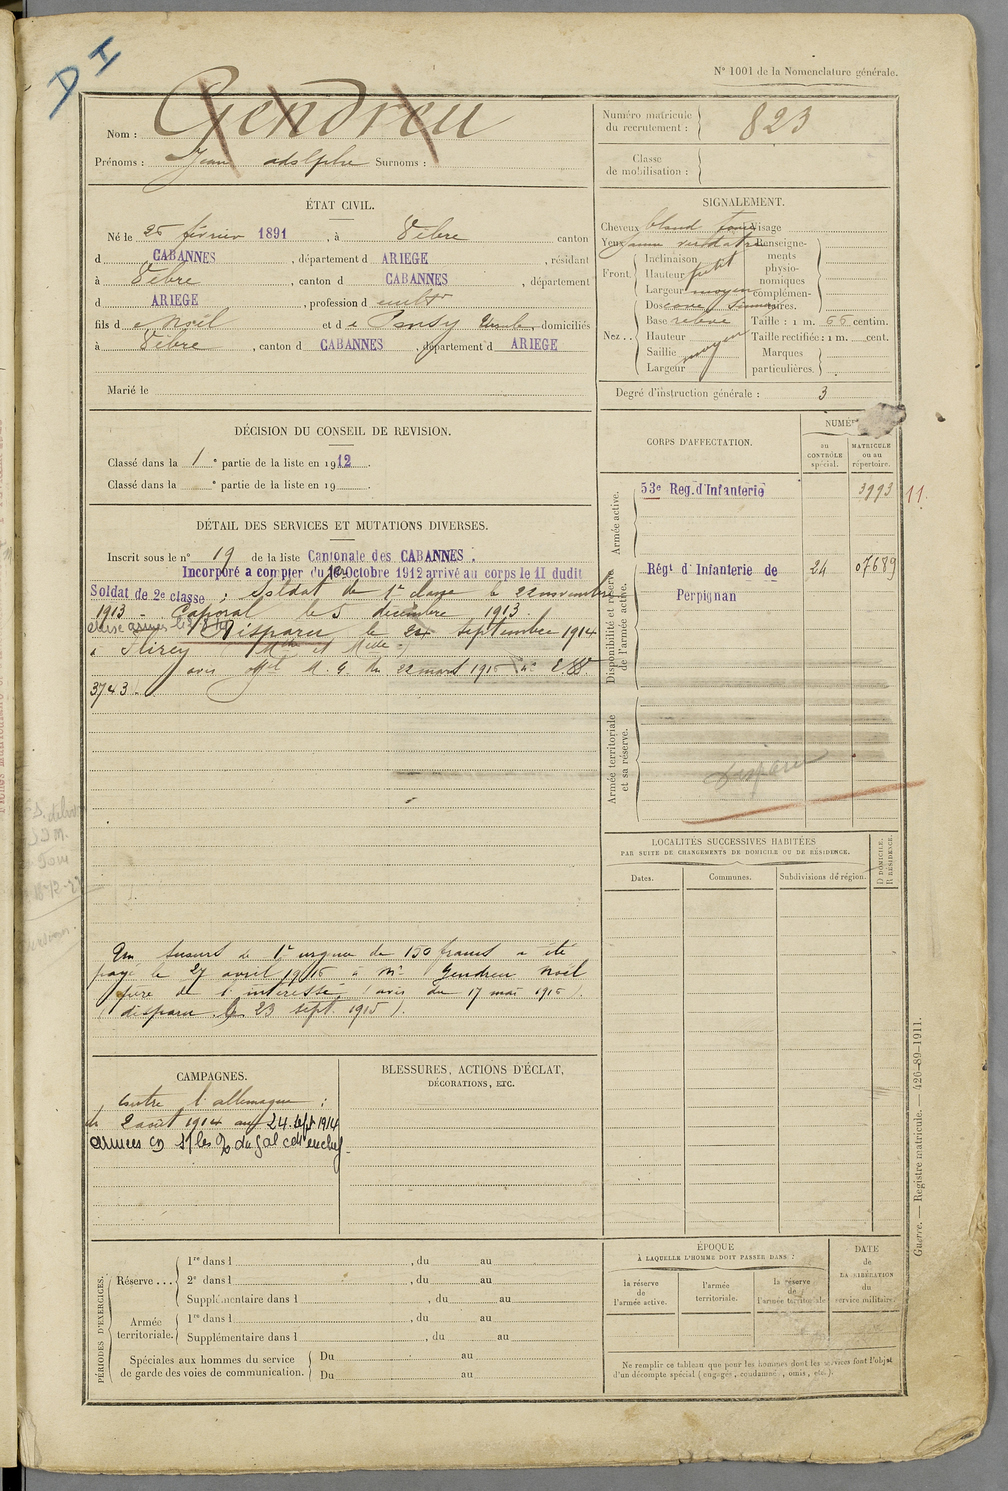 D I
N° 1001 de la Nomenclature générale.
Nom : Gendreu
Prénoms : Jean adolphe Surnoms :
Numéro matricule du recrutement : 823
Classe de mobilisation :
ÉTAT CIVIL.
Né le 25 février 1891, à Vèbre canton
d CABANNES, département d ARIEGE, résidant
à Vèbre, canton d CABANNES, département
d ARIEGE, profession d cultr
fils d e Noël et d e Ursule domiciliés
à Vèbre, canton d CABANNES, département d ARIEGE
Marié le
SIGNALEMENT.
Cheveux blond foncé Visage
Yeux jaune verdatre Renseigne-
ments
physio-
nomiques
complémen-
taires.
Front. Inclinaison
Hauteur petit
Largeur moyen
Nez.. Dos cave sinueux
Base relevé Taille : 1 m. 66 centim.
Hauteur Taille rectifiée : 1 m. cent.
Saillie moyen Marques
Largeur particulières.
Degré d'instruction générale : 3
DÉCISION DU CONSEIL DE REVISION.
Classé dans la 1 e partie de la liste en 1912.
Classé dans la e partie de la liste en 19
CORPS D'AFFECTATION.
NUMÉ
au CONTRÔLE spécial.
MATRICULE ou au répertoire.
Armée active.
53e Reg. d'Infanterie 3993 11.
Disponibilité et réserve de l'armée active.
Régt d'Infanterie de Perpignan 24 07689
Armée territoriale et sa réserve.
disparu
DÉTAIL DES SERVICES ET MUTATIONS DIVERSES.
Inscrit sous le n° 19 de la liste Cantonale des CABANNES.
Incorporé a compter du 10 Octobre 1912 arrivé au corps le 11 dudit
Soldat de 2e classe ; Soldat de 1e classe le 22 novembre
1913 - Caporal le 5 décembre 1913.
Disparu le 24 septembre 1914
à Flirey (Mthe et Mlle)
avis offel M. G. du 22 mars 1915
3743.
Un secours de 1e urgence de 150 francs a été
payé le 27 avril 1915 à Mr Gendreu Noël
père de l'intéressé (avis du 17 mai 1915).
(disparu le 23 sept. 1915).
LOCALITÉS SUCCESSIVES HABITÉES
PAR SUITE DE CHANGEMENTS DE DOMICILE OU DE RÉSIDENCE.
Dates. Communes. Subdivisions de région. D DOMICILE. R RÉSIDENCE.
CAMPAGNES.
Contre l'allemagne :
du 2 août 1914 au 24 sept 1914
armées
BLESSURES, ACTIONS D'ÉCLAT,
DÉCORATIONS, ETC.
PÉRIODES D'EXERCICES.
Réserve... 1re dans l , du au
2e dans l , du au
Supplémentaire dans l , du au
Armée territoriale. 1re dans l , du au
Supplémentaire dans l , du au
Spéciales aux hommes du service de garde des voies de communication. Du au
Du au
ÉPOQUE
À LAQUELLE L'HOMME DOIT PASSER DANS :
la réserve de l'armée active.
l'armée territoriale.
la réserve de l'armée territoriale
DATE de LA LIBÉRATION du service militaire.
Ne remplir ce tableau que pour les hommes dont les services font l'objet
d'un décompte spécial (engagés, condamnés, omis, etc.).
Guerre. — Registre matricule. — 426-89-1911.